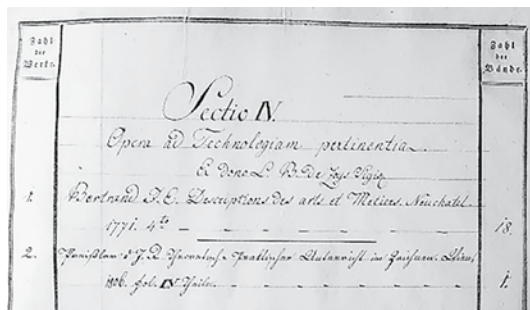 Zahl
der
Werke.
Zahl
der
Bände.
Sectio IV.
Opera ad Technologiam pertinentia.
Ex dono L. B. De Zoys Sigis
1. Bertrand J. E. Descriptions des arts et Metiers. Neuchatel
1771. 4to 18.
2. Preißler's J. D. Theoretisch-Praktischer Unterricht im Zeichnen.
1806. fol. IVr Theile. 1.